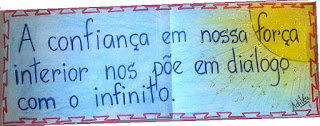 A confiança em nossa força
interior nos põe em diálogo
com o infinito.